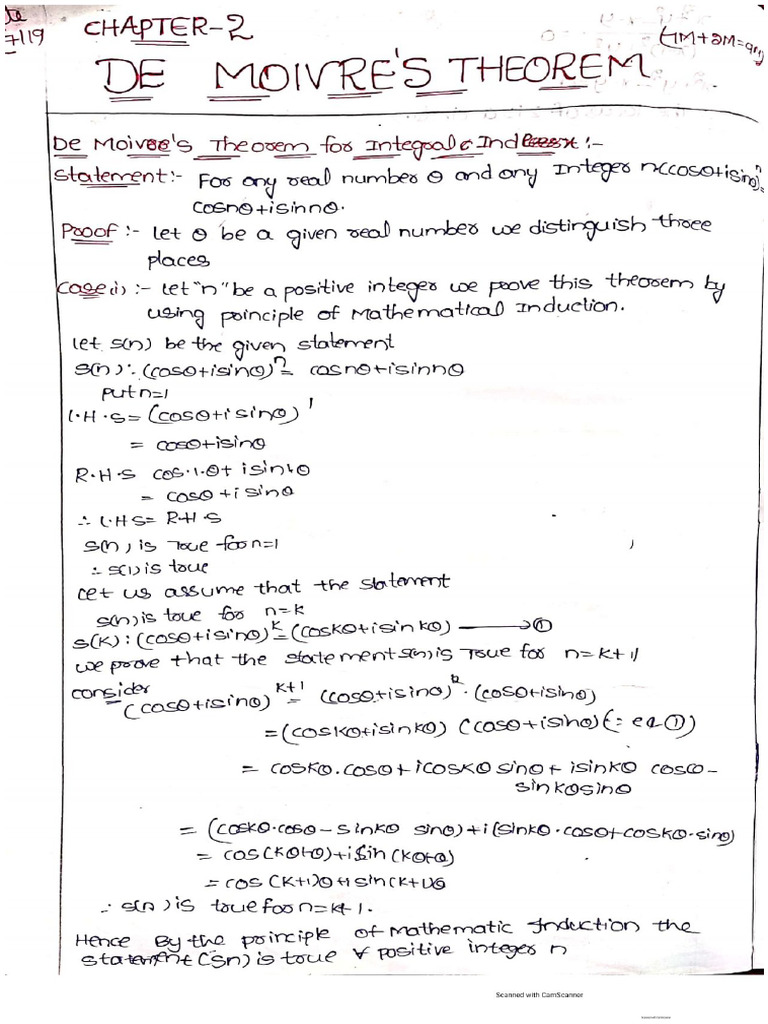 7/19
CHAPTER-2
(7M+2M=9M)
DE MOIVRE'S THEOREM
De Moivre's Theorem for Integral Index :-
Statement:- For any real number θ and any Integer n (cosθ+isinθ)ⁿ=
cosnθ+isinnθ.
Proof :- let θ be a given real number we distinguish three
places
Case(i) :- Let "n" be a positive integer we prove this theorem by
using principle of Mathematical Induction.
let S(n) be the given statement
S(n): (cosθ+isinθ)ⁿ= cosnθ+isinnθ
put n=1
L.H.S= (cosθ+isinθ)¹
= cosθ+isinθ
R.H.S cos.1.θ+ isin1θ
= cosθ+isinθ
∴ LHS= R.H.S
S(n) is True for n=1
∴ S(1) is true
Let us assume that the statement
S(n) is true for n=k
S(k): (cosθ+isinθ)ᵏ=(coskθ+isinkθ) ⟶①
we prove that the statement S(n) is True for n=k+1
consider
(cosθ+isinθ)ᵏ⁺¹= (cosθ+isinθ)ᵏ.(cosθ+isinθ)
=(coskθ+isinkθ) (cosθ+isinθ)(∵ eq ①)
= coskθ.cosθ+icoskθ sinθ+ isinkθ cosθ-
sinkθsinθ
= (coskθ.cosθ-sinkθ sinθ)+i(sinkθ.cosθ+coskθ.sinθ)
= cos(kθ+θ)+iSin(kθ+θ)
= cos(k+1)θ+isin(k+1)θ
∴ S(n) is true for n=k+1.
Hence By the principle of Mathematic Induction the
statement (Sn) is true ∀ positive integer n
Scanned with CamScanner